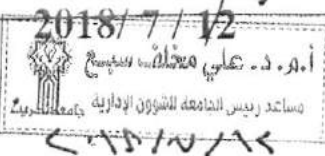 2018/ 7 / 12
أ.م. د. علي مخلف
مساعد رئيس الجامعة للشؤون الإدارية
جامعة
٢٠١٨/٧/١٢